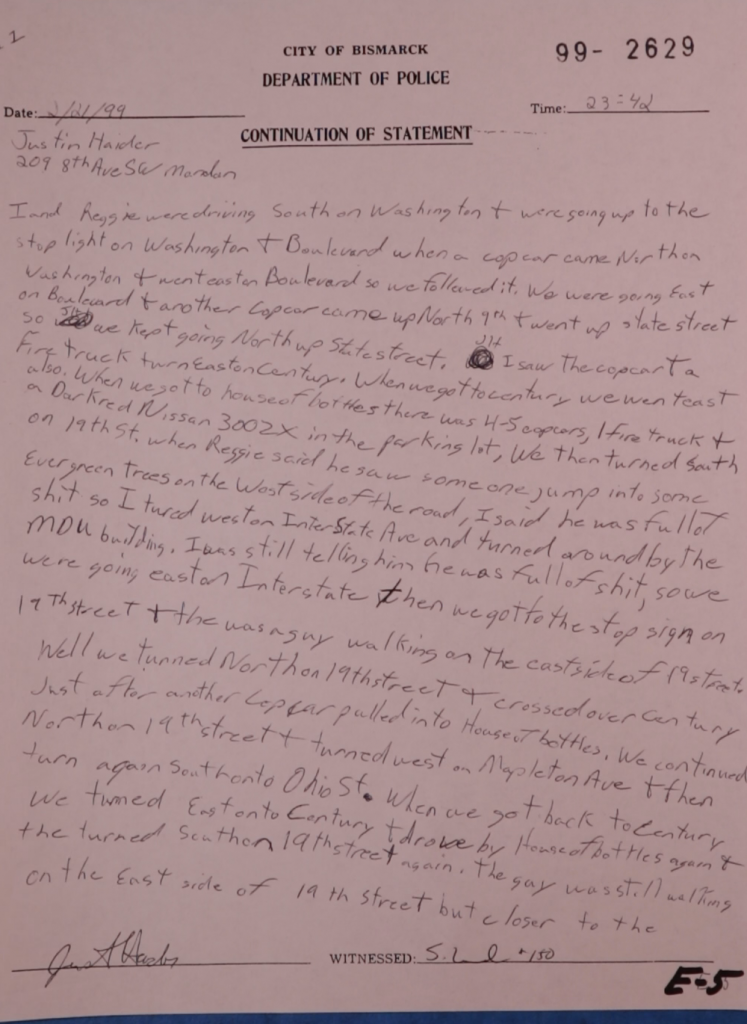 1
CITY OF BISMARCK
99- 2629
DEPARTMENT OF POLICE
Date: 2/21/99
Time: 23:42
CONTINUATION OF STATEMENT
Justin Haider
209 8th Ave SW Mandan
I and Reggie were driving South on Washington & were going up to the
stop light on Washington & Boulevard when a cop car came North on
Washington & went east on Boulevard so we followed it. We were going East
on Boulevard & another Cop car came up North 9th & went up state street
so JH we kept going North up State street. JH I saw the cop car & a
Fire truck turn East on Century. When we got to century we went east
also. When we got to house of bottles there was 4-5 cop cars, 1 fire truck &
a Dark red Nissan 300ZX in the parking lot, We then turned South
on 19th St. when Reggie said he saw someone jump into some
Evergreen trees on the West side of the road, I said he was full of
shit so I tured west on InterState Ave and turned around by the
MDU building. I was still telling him he was full of shit, so we
were going east on Interstate then we got to the stop sign on
19th street & the was a guy walking on the east side of 19 street.
Well we turned North on 19th street & crossed over Century
Just after another Cop car pulled into House of bottles. We continued
North on 19th street & turned west on Mapleton Ave & then
turn again South onto Ohio St. When we got back to Century
we turned East onto Century & drove by House of bottles again &
the turned South on 19th street again. The guy was still walking
on the East side of 19th Street but closer to the
WITNESSED: #150
E-5